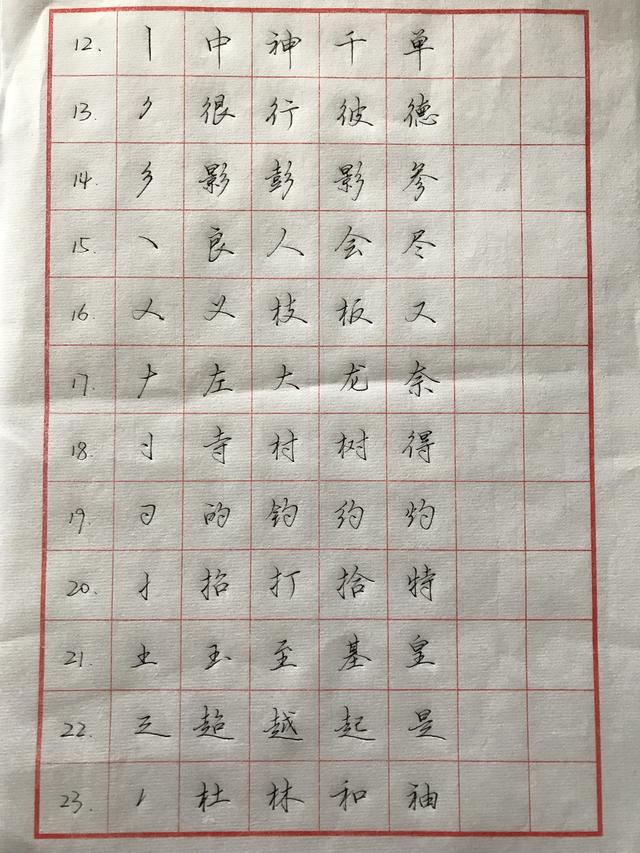 12. 丨 中 神 千 单
13. 很 行 彼 德
14. 彡 影 彭 影 参
15. 丶 良 人 会 尽
16. 㐅 义 枝 板 又
17. 𠂇 左 大 龙 奈
18. 寺 村 树 得
19. 的 钧 约 灼
20. 招 打 拾 特
21. 土 玉 至 基 皇
22. 超 越 起 是
23. 杜 林 和 袖